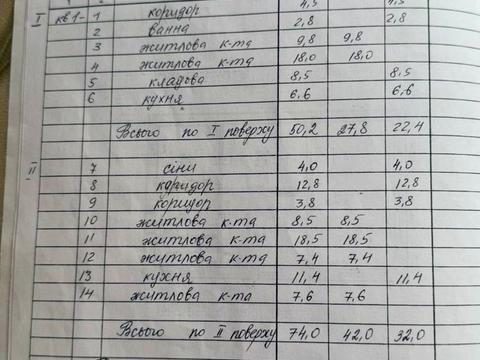 I кв1- 1 коридор 4,5 4,5
2 ванна 2,8 2,8
3 житлова к-та 9,8 9,8
4 житлова к-та 18,0 18,0
5 кладова 8,5 8,5
6 кухня 6,6 6,6
Всього по I поверху 50,2 27,8 22,4
II 7 сіни 4,0 4,0
8 коридор 12,8 12,8
9 коридор 3,8 3,8
10 житлова к-та 8,5 8,5
11 житлова к-та 18,5 18,5
12 житлова к-та 7,4 7,4
13 кухня 11,4 11,4
14 житлова к-та 7,6 7,6
Всього по II поверху 74,0 42,0 32,0